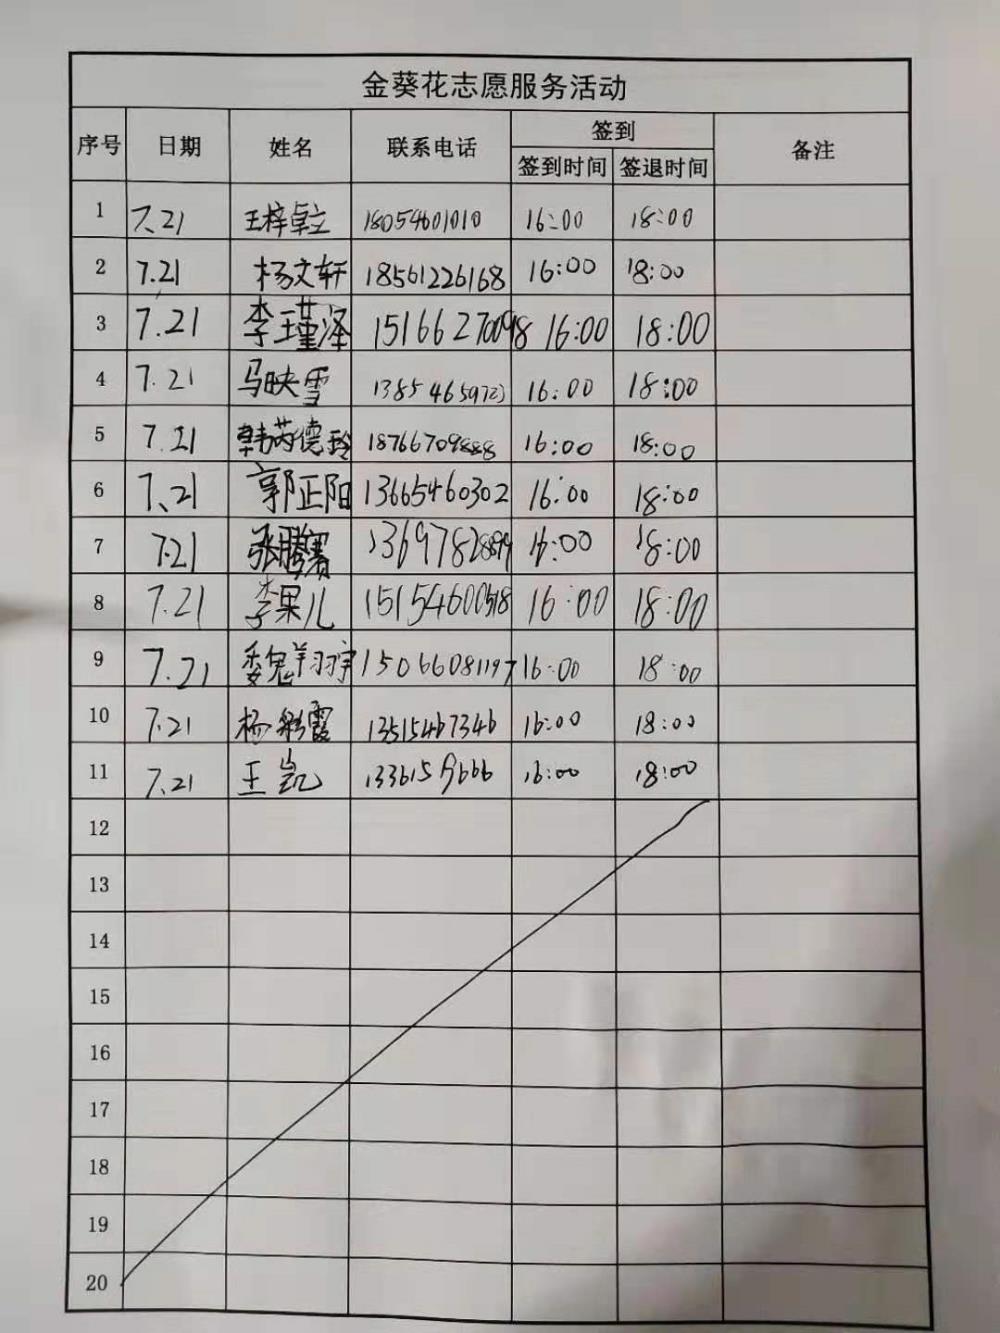 金葵花志愿服务活动
序号 日期 姓名 联系电话 签到 备注
签到时间 签退时间
1 7.21 王梓卓立 18054601010 16:00 18:00
2 7.21 杨文轩 18561226168 16:00 18:00
3 7.21 李瑾泽 15166270098 16:00 18:00
4 7.21 马映雪 16:00 18:00
5 7.21 韩芮德玲 18766709888 16:00 18:00
6 7.21 郭正阳 13665460302 16:00 18:00
7 7.21 张腾赛 16:00 18:00
8 7.21 李果儿 15154600518 16:00 18:00
9 7.21 魏翔宇 15066081197 16:00 18:00
10 7.21 杨彩霞 13515467346 16:00 18:00
11 7.21 王凯 16:00 18:00
12
13
14
15
16
17
18
19
20